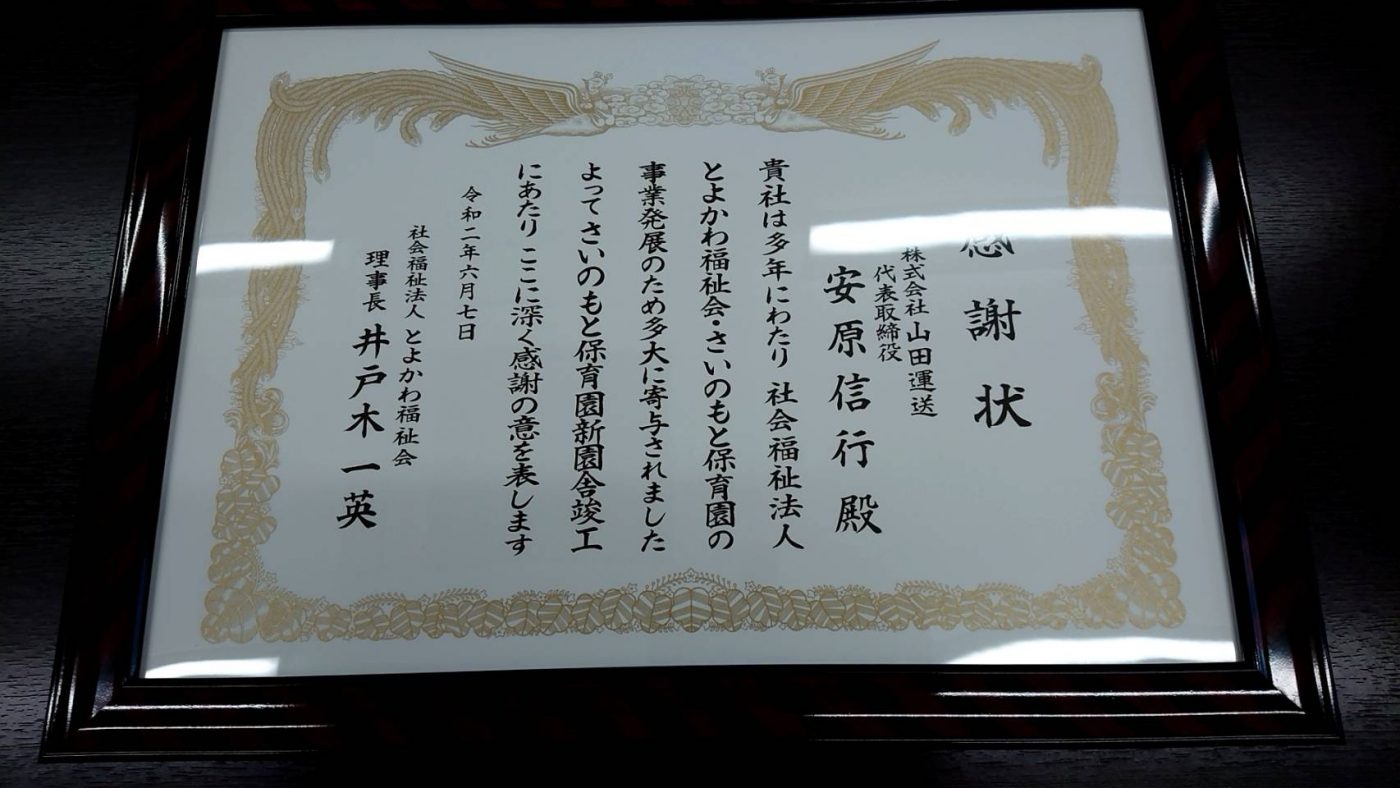 感謝状
株式会社 山田運送
代表取締役
安原信行殿
貴社は多年にわたり 社会福祉法人
とよかわ福祉会・さいのもと保育園の
事業発展のため多大に寄与されました
よってさいのもと保育園新園舎竣工
にあたり ここに深く感謝の意を表します
令和二年六月七日
社会福祉法人 とよかわ福祉会
理事長 井戸木一英